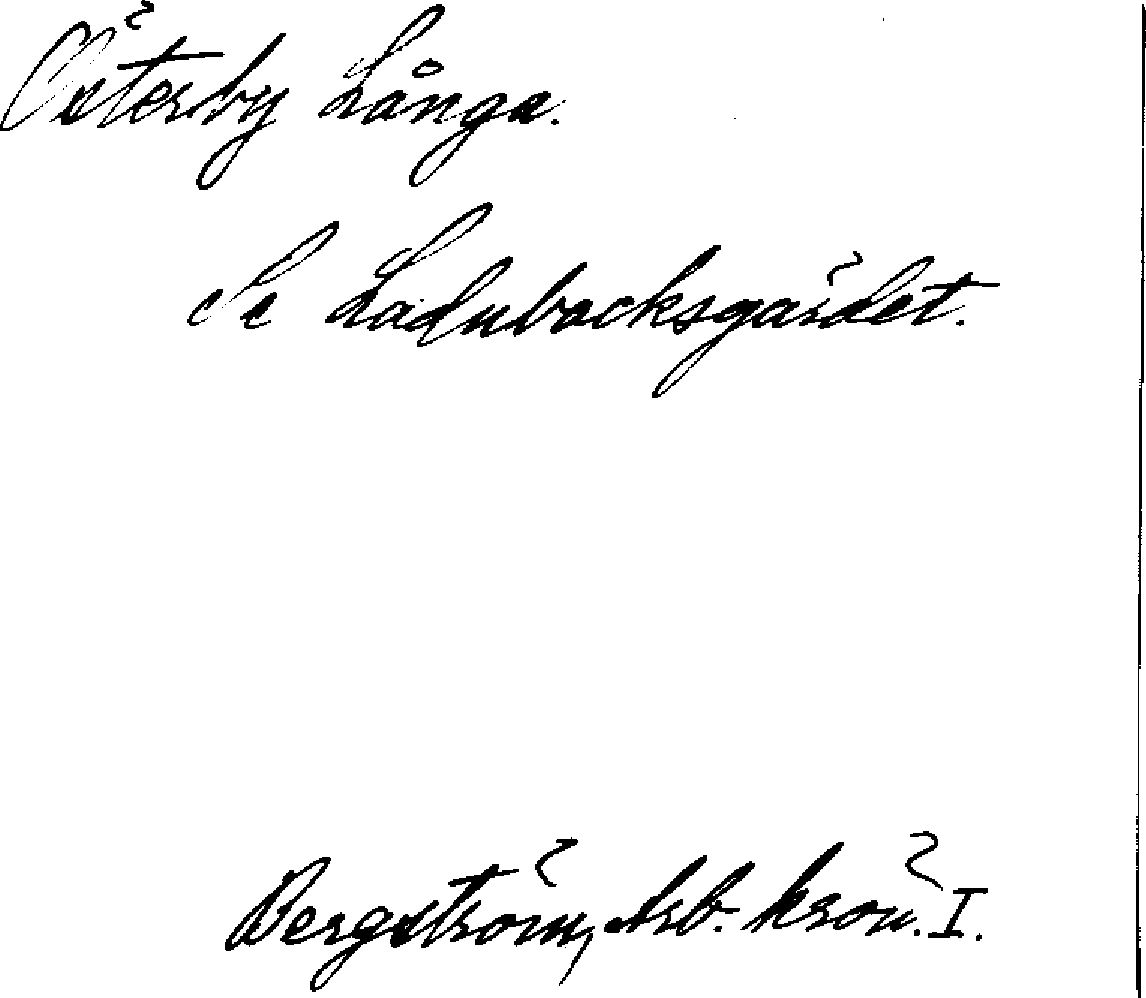 Österby Långa.
Se Ladubacksgärdet.
Bergström, Arb. krön. I.